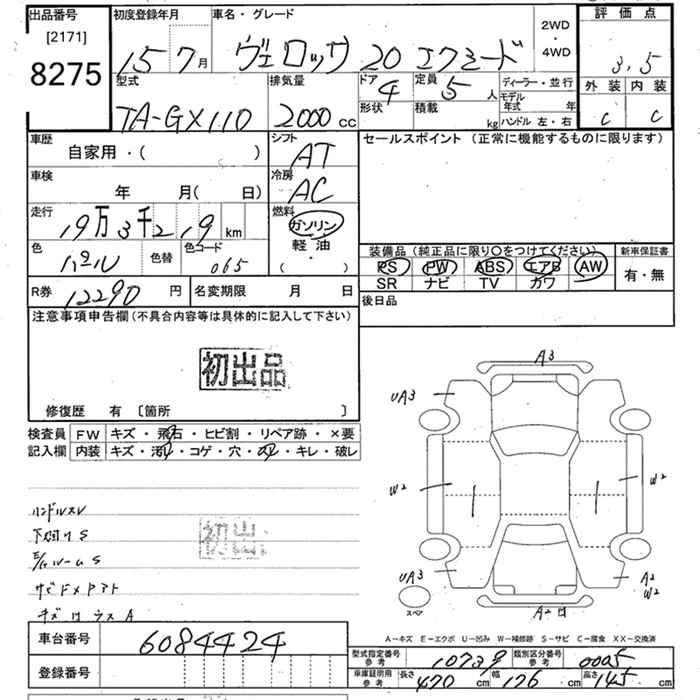 出品番号 初度登録年月 車名・グレード 2WD・4WD 評価点
[2171] 8275 15 7月 ヴェロッサ 20 3.5
型式 排気量 ドア 4 定員 5人 ディーラー・並行 外装 内装
TA-GX110 2000cc 形状 積載 kg モデル年式 年 ハンドル 左・右 C C
車歴 シフト セールスポイント (正常に機能するものに限ります)
自家用・( ) AT
車検 冷房
年 月( 日) AC
走行 燃料
19万3千2,19km ガソリン
色 色替 色コード 軽油 装備品 (純正品に限り〇をつけてください) 新車保証書
パール 065 ( ・ ) PS PW ABS エアB AW 有・無
R券 12290円 名変期限 月 日 SR ナビ TV カワ
後日品
注意事項申告欄(不具合内容等は具体的に記入して下さい)
初出品
修復歴 有 〔箇所 〕
検査員 FW キズ・飛石・ヒビ割・リペア跡・×要
記入欄 内装 キズ・汚れ・コゲ・穴・スレ・キレ・破レ
A3
UA3
W2 W2
UA3 A2
W2
スペア
A2
ハンドルスレ
下廻りS
初出
キズ A
A-キズ E-エクボ U-凹み W-補修跡 S-サビ C-腐食 XX-交換済
車台番号 6084424
型式指定番号 参考 10739 類別区分番号 参考 0005
登録番号
車庫証明用 参考 長さ 470cm 幅 176cm 高さ 145cm